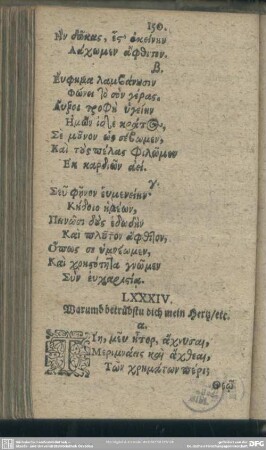 150.
Ἣν δῶκας, ἔς' ἐκείνην
Λάχωμεν ἄφθιτον.
β.
Εὔφημα λαμβάνωσιν
Φῶναι τὸ σὸν γέρας,
τροφὴ ὑγιείη
Ἡμῶν κράτος,
Σὲ μόνον ὡς σέβωμεν,
Καὶ τοὺς πέλας φιλῶμεν
Ἐκ καρδιῶν ἀεί.
γ.
Σεῦ φῆνον εὐμενείην
Κήθοιο ἡμέων,
Πεινῶσι δὸς ἐδωδὴν
Καὶ πλοῦτον ἄφθιτον,
Ὅπως σε ὑμνέωμεν,
Καὶ χρηστότητα γνῶμεν
Σὺν εὐχαριστίᾳ.
LXXXIV.
Warumb betrübstu dich mein Hertz/etc.
α.
Τίη, μεῦ ἦτορ, ἄχνυσαι,
Μεριμνάεις καὶ ἄχθεαι,
Τῶν χρημάτων πέρι;